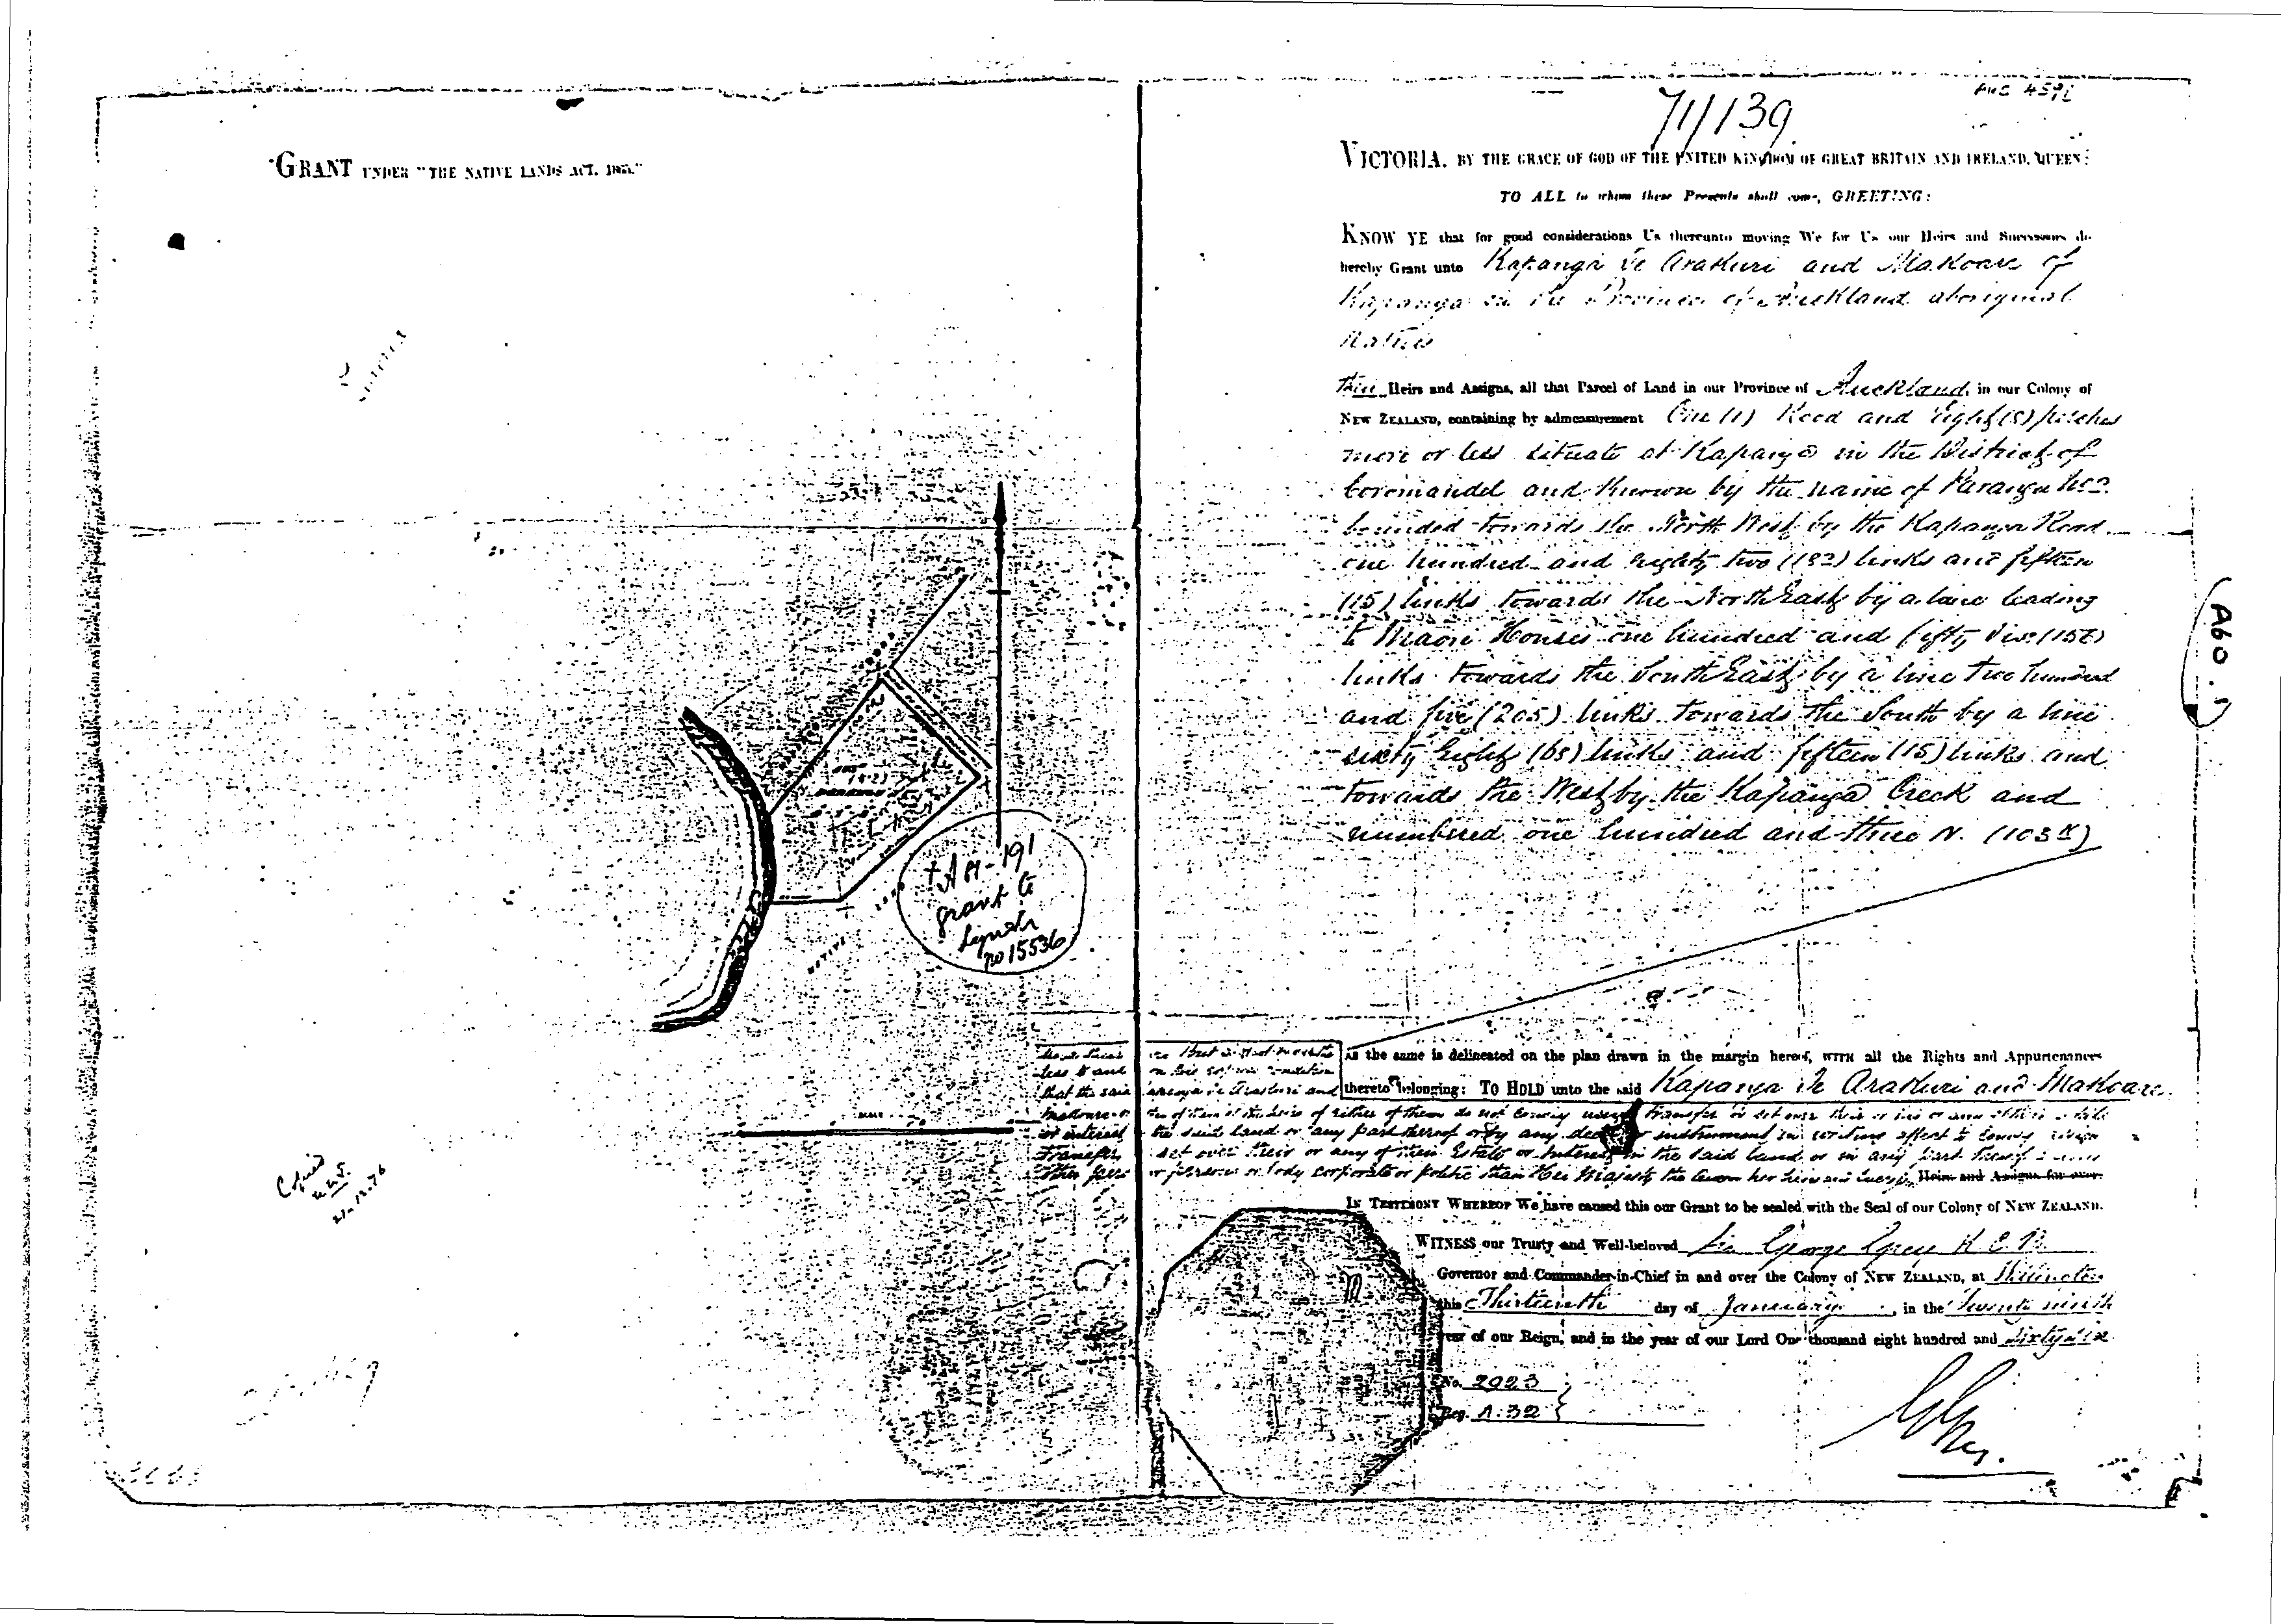 71/139
GRANT UNDER "THE NATIVE LANDS ACT, 1865."
VICTORIA, BY THE GRACE OF GOD OF THE UNITED KINGDOM OF GREAT BRITAIN AND IRELAND, QUEEN:
TO ALL to whom these Presents shall come, GREETING:
KNOW YE that for good considerations Us thereunto moving We for Us our Heirs and Successors do
hereby Grant unto Kapanga Te Arakuri and Makoare of
Kapanga in the Province of Auckland aboriginal
natives
Their Heirs and Assigns, all that Parcel of Land in our Province of Auckland, in our Colony of
NEW ZEALAND, containing by admeasurement One (1) Rood and Eight (8) perches
more or less situate at Kapanga in the District of
Coromandel and known by the name of
bounded towards the North West by the Kapanga Road
one hundred and eighty two (182) links and fifteen
(15) links towards the North East by a lane leading
to Maori Houses one hundred and fifty
links towards the South East by a line two hundred
and five (205) links towards the South by a line
sixty eight (68) links and fifteen (15) links and
towards the West by the Kapanga Creek and
numbered one hundred and three N. (103N)
+ A H-191
grant to
Lynch
no 15536
NATIVE
LAND
As the same is delineated on the plan drawn in the margin hereof, WITH all the Rights and Appurtenances
thereto belonging: TO HOLD unto the said Kapanga Te Arakuri and Makoare
that the said Te Arakuri and
of them or the heirs of either of them do not convey
or interest the said land or any part thereof or by any deed or instrument in writing affect to convey
Transfer set over their or any of their Estate or Interest in the said land or in any part thereof
or persons or body corporate or politic than Her Majesty the Queen her heirs and Heirs and Assigns for ever.
IN TESTIMONY WHEREOF We have caused this our Grant to be sealed with the Seal of our Colony of NEW ZEALAND.
WITNESS our Trusty and Well-beloved Sir George Grey K C B
Governor and Commander-in-Chief in and over the Colony of NEW ZEALAND, at Wellington
this Thirteenth day of January, in the Twenty ninth
year of our Reign, and in the year of our Lord One thousand eight hundred and sixty six
No. 2023
Reg. N. 32
G Grey.
Copied
21.12.76
A60.